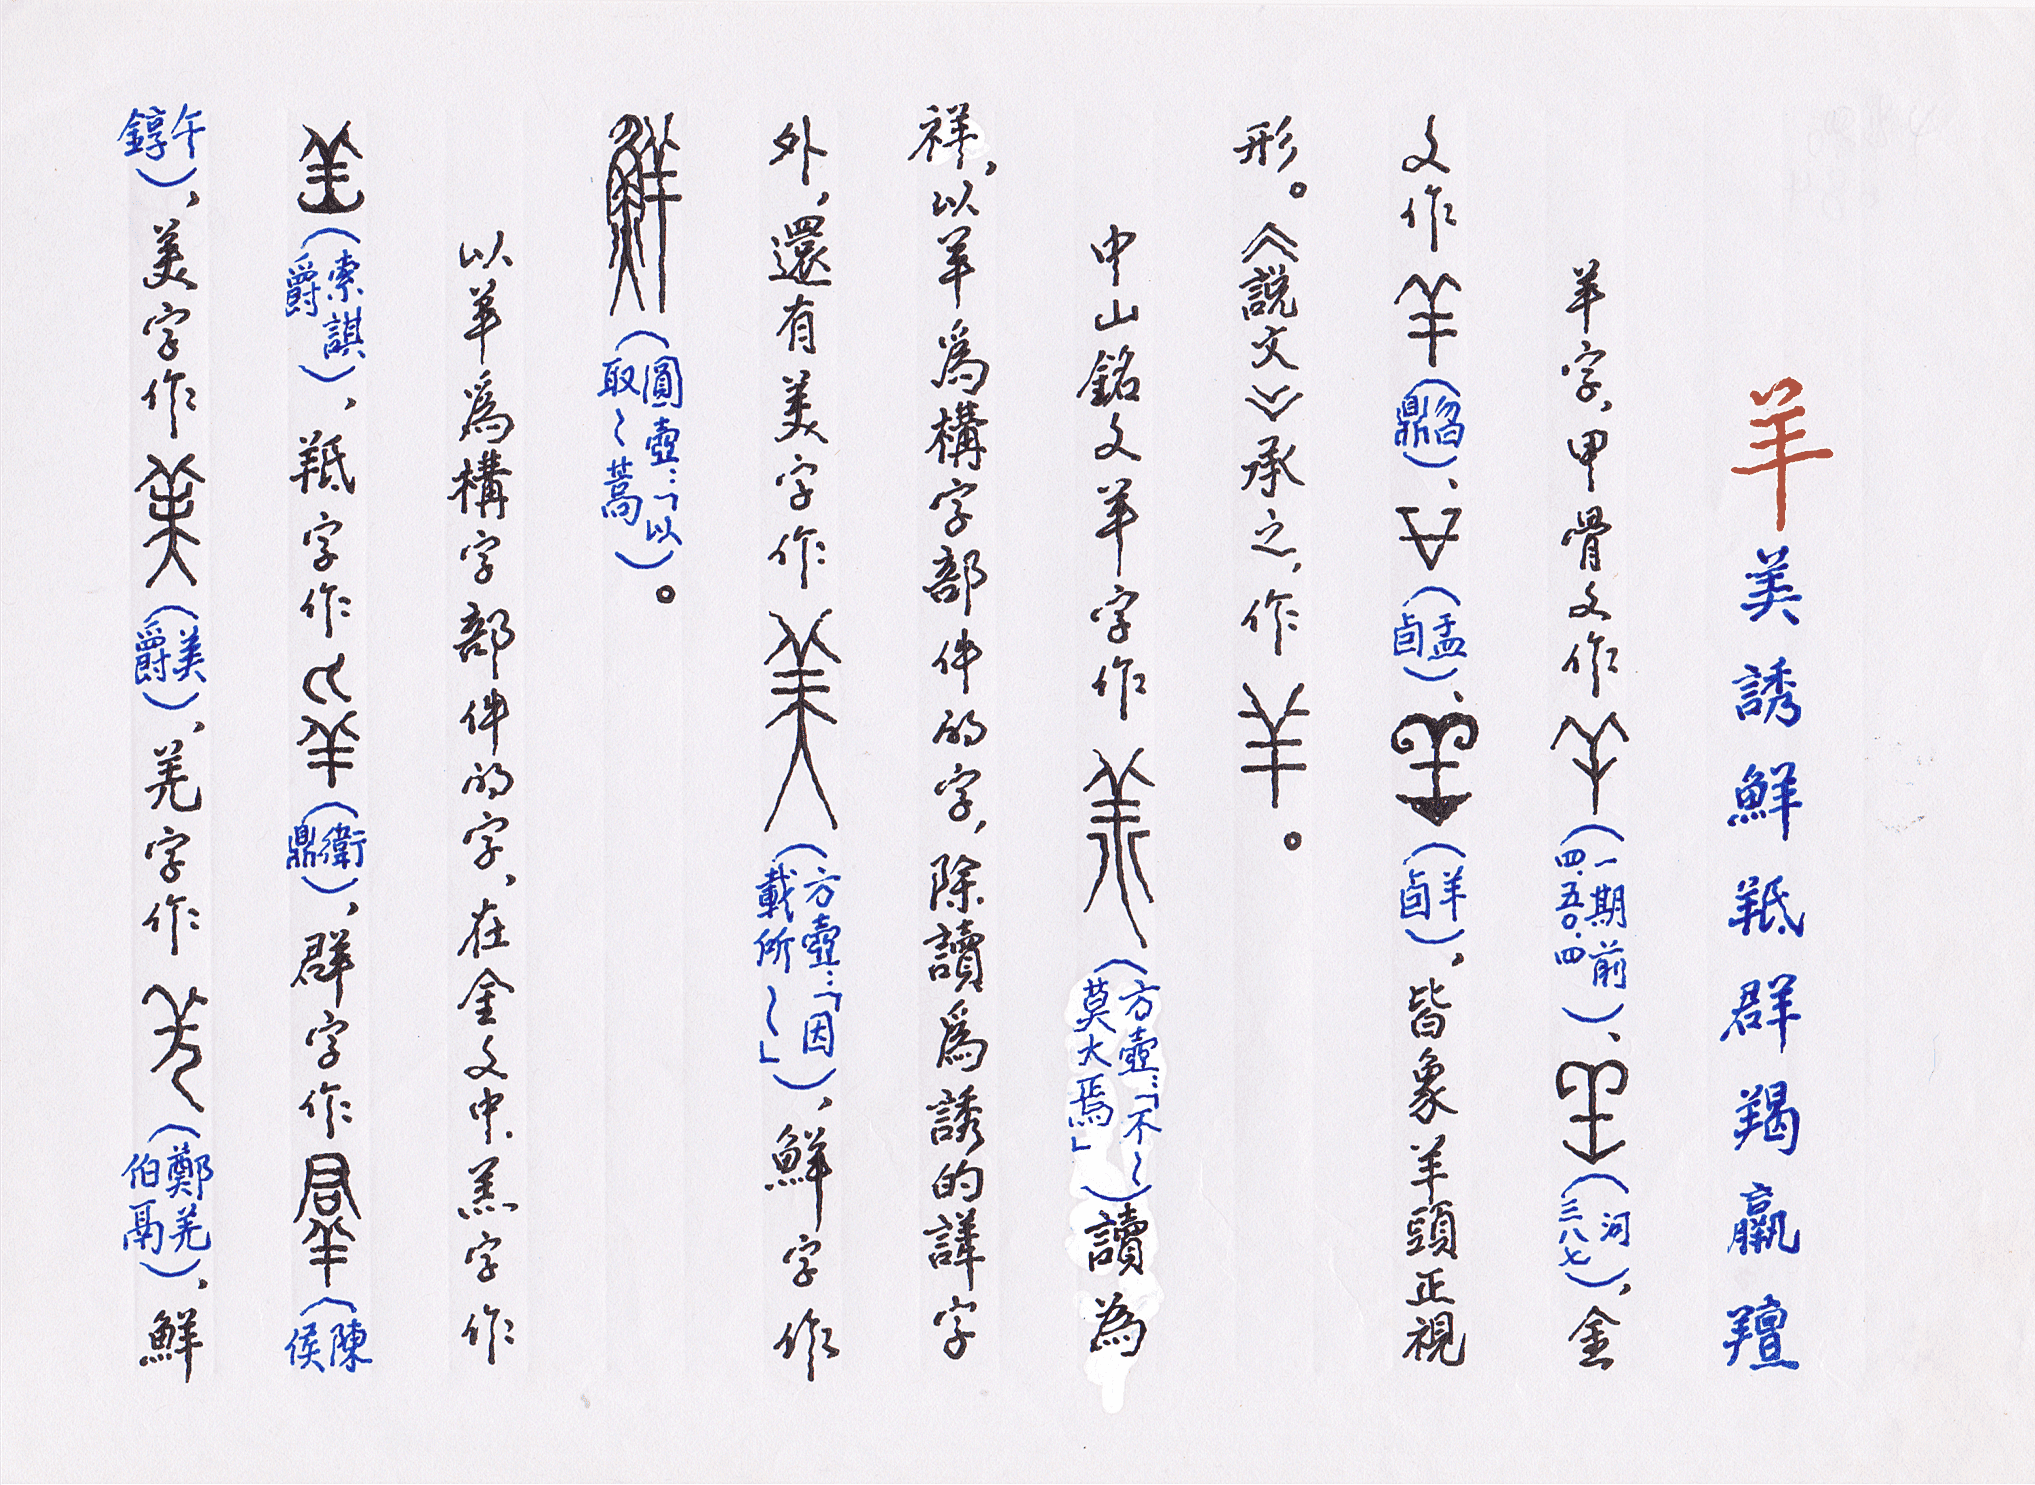 羊 美 誘 鮮 羝 群 羯 羸 羶
羊字，甲骨文作（一期前四·五〇·四）、（河三八七），金
文作（曶鼎）、（盂卣）、（羊卣），皆象羊頭正視
形。《説文》承之，作。
中山銘文羊字作（方壺：「不〻莫大焉」）讀為
祥，以羊爲構字部件的字，除讀爲誘的譁字
外，還有美字作（方壺：「因載所〻」），鮮字作
（圓壺：「以取〻蒿）。
以羊爲構字部件的字，在金文中，羔字作
（索諆爵），羝字作（衛鼎），群字作（陳侯
午錞），美字作（美爵），羌字作（鄭羌伯鬲），鮮